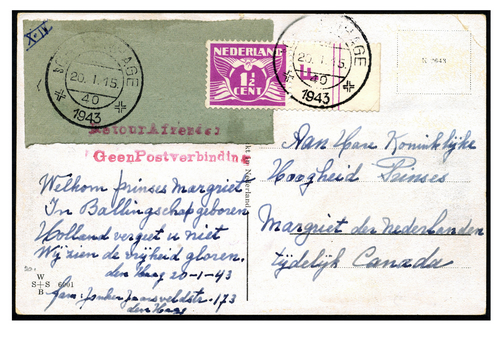 X.IV.
20.1.15
40
1943
NEDERLAND
1½
CENT
20.1.15
40
1943
Retour Afzender
Geen Postverbinding
Welkom Prinses Margriet
In Ballingschap geboren
Holland vergeet u niet
Wij zien de vrijheid gloren.
den Haag 20-1-43
173
den Haag
W
S+S 6001
B
Aan Hare Koninklijke
Hoogheid Prinses
Margriet der Nederlanden
tijdelijk Canada